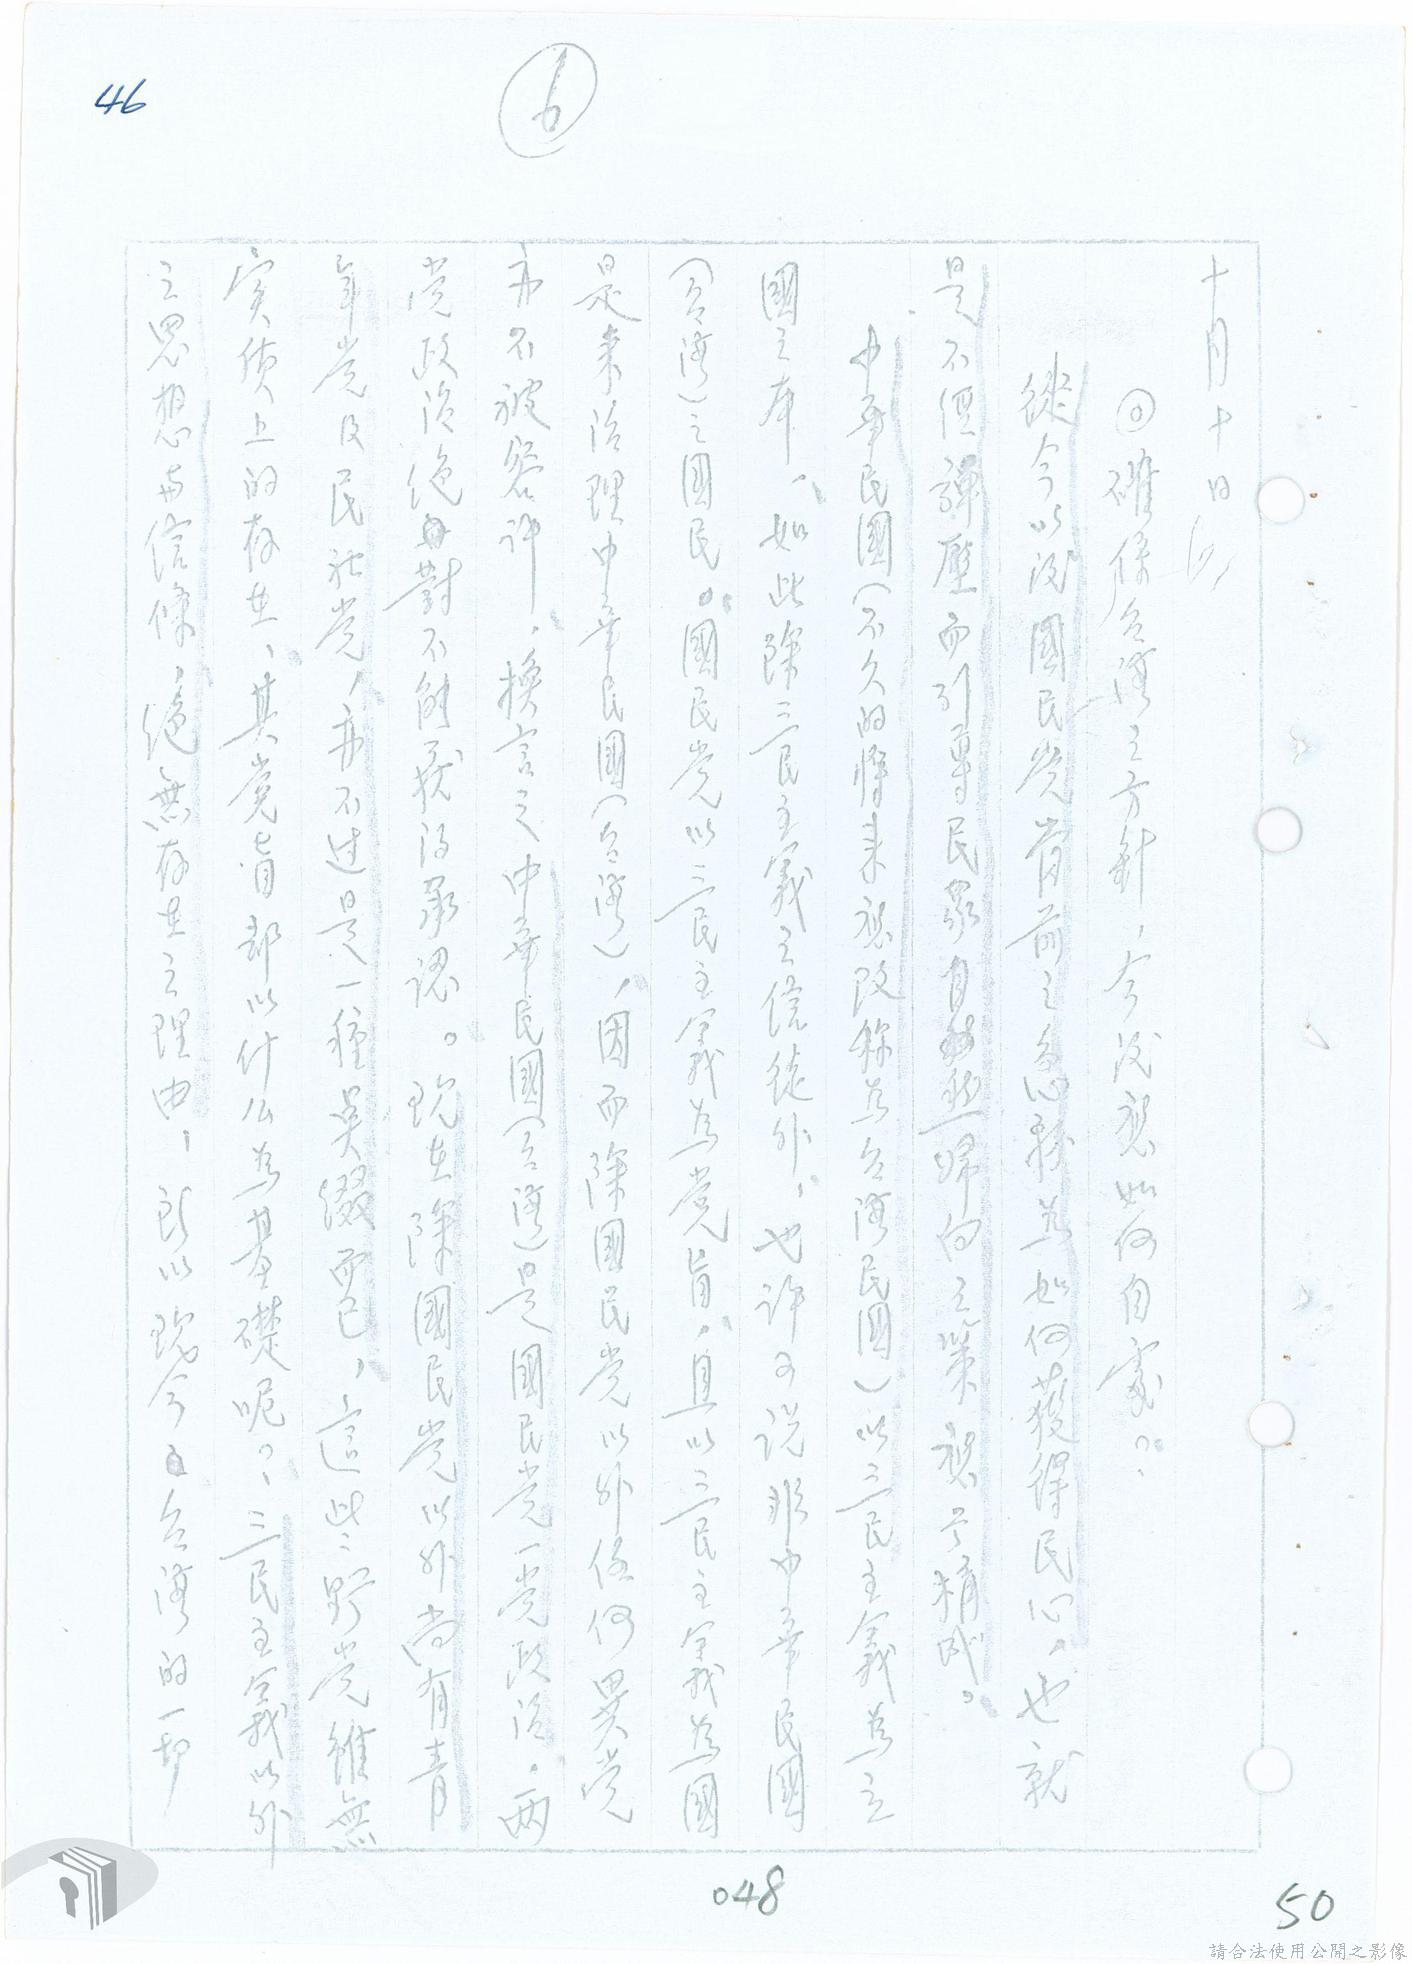 46
6
十月十日
◎確保台灣之方針，今後想如何自處。
從今以後國民党当前之急務為如何获得民心，也就
是不但彈壓而引導民眾自然歸向之策想予構成。
中華民國（不久的將來想改称為台湾民國）以三民主義為立
國之本。如此除三民主義之信徒外，也許可说非中華民國
（台湾）之國民。國民党以三民主義為党旨，且以三民主義為國
是來治理中華民國（台湾），因而除國民党以外任何異党
亦不被容許，換言之中華民國（台湾）是國民党一党政治，两
党政治絶對不能获得承認。现在除國民党以外尚有青
年党及民社党，亦不过是一種点缀而已，這些野党雖無
实质上的存在，其党旨都以什么為基礎呢。三民主義以外
之思想与信條，絶無存在之理由，所以现今台湾的一切
048
50
請合法使用公開之影像